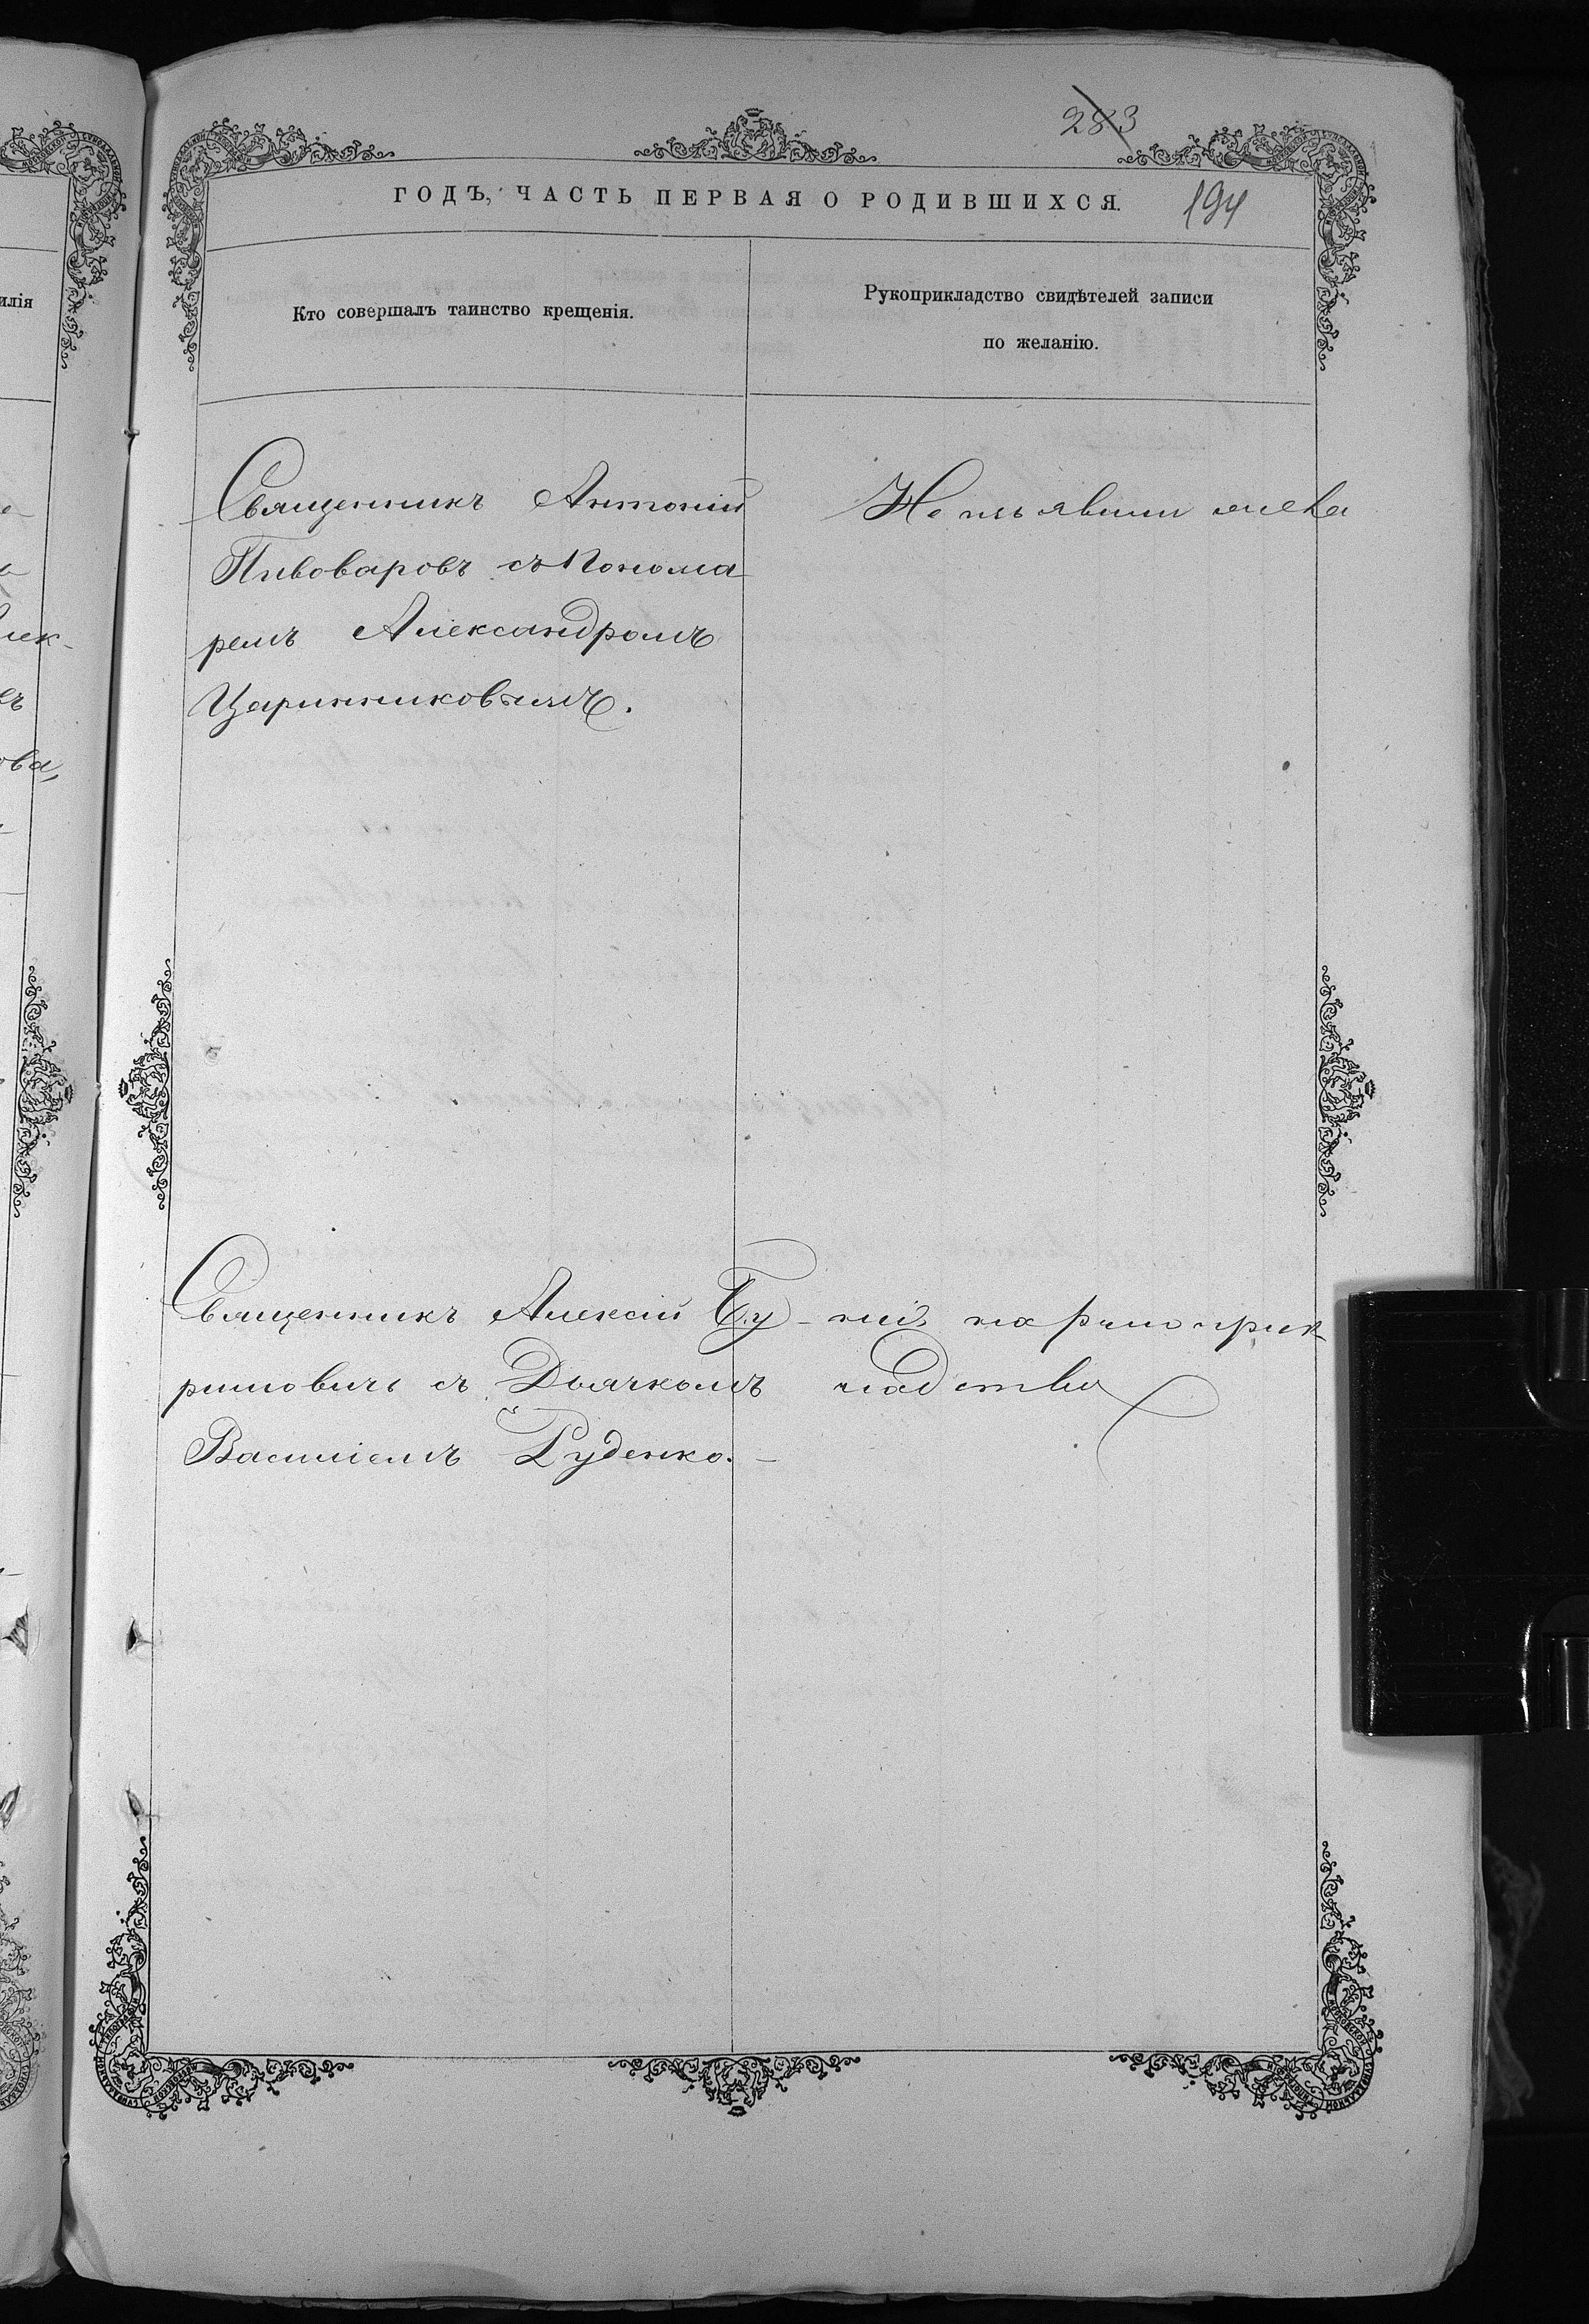 283
ГОДЪ, ЧАСТЬ ПЕРВАЯ О РОДИВШИХСЯ.
194
илія
Кто совершалъ таинство крещенія.
Рукоприкладство свидѣтелей записи
по желанію.
Священникъ Антоній
Пивоваровъ съ Понома
ремъ Александромъ
Царинниковымъ.
Не изъявили жела
Священникъ Алексій Бу-
римовичъ съ Дьячкомъ
Василіемъ Руденко.-
нія на рукоприк
ладство
лек-
ова,